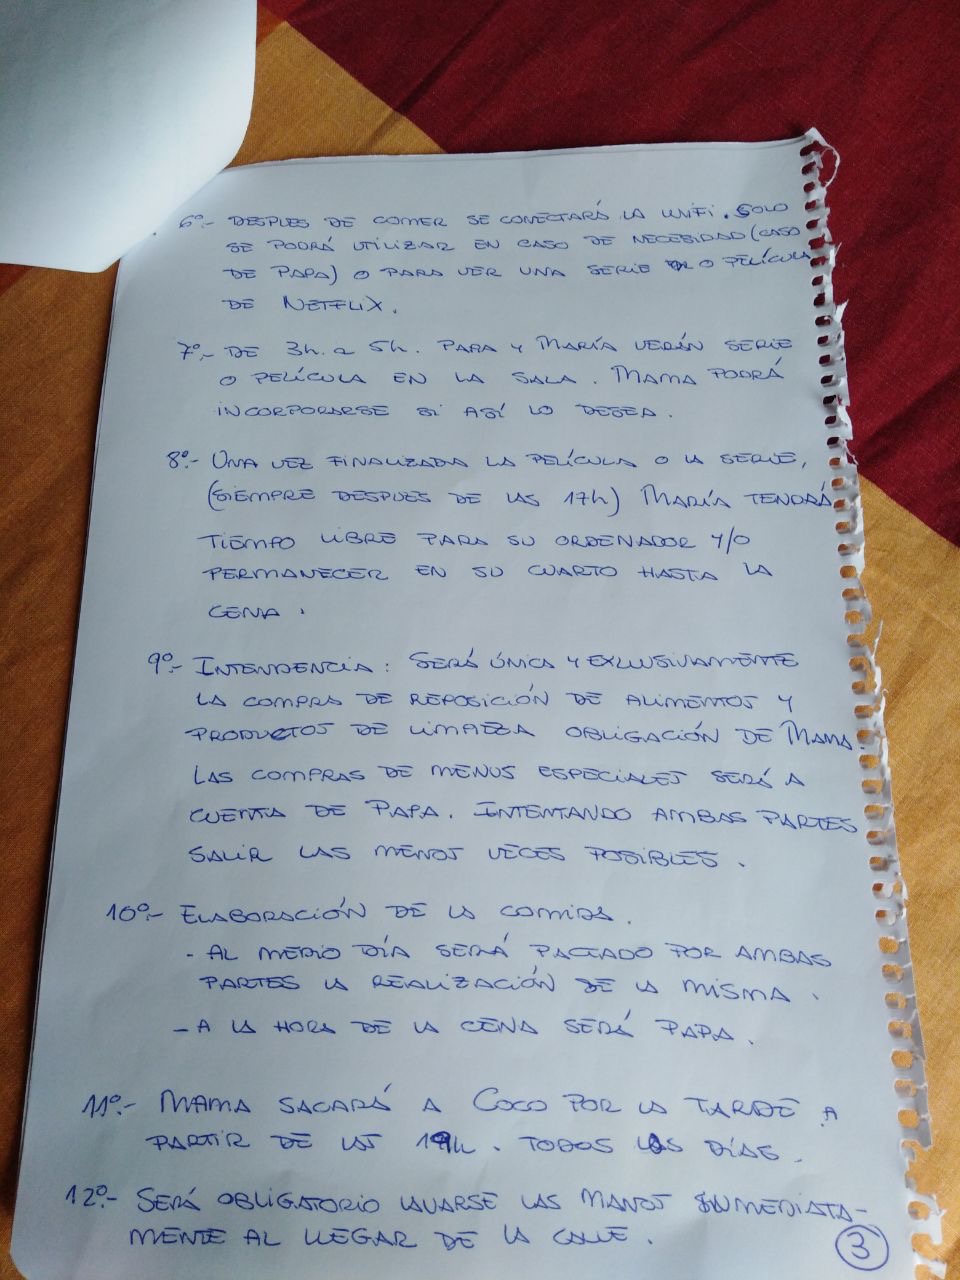 6º.- DESPUES DE COMER SE CONECTARÁ LA WIFI. SOLO
SE PODRÁ UTILIZAR EN CASO DE NECESIDAD (CASO
DE PAPA) O PARA VER UNA SERIE O PELÍCULA
DE NETFLIX.
7º.- DE 3h. a 5h. PAPA Y MARÍA VERÁN SERIE
O PELÍCULA EN LA SALA. MAMA PODRÁ
INCORPORARSE SI ASÍ LO DESEA.
8º.- UNA VEZ FINALIZADA LA PELÍCULA O LA SERIE,
(SIEMPRE DESPUES DE LAS 17h) MARÍA TENDRÁ
TIEMPO LIBRE PARA SU ORDENADOR Y/O
PERMANECER EN SU CUARTO HASTA LA
CENA.
9º.- INTENDENCIA: SERÁ ÚNICA Y EXLUSIVAMENTE
LA COMPRA DE REPOSICIÓN DE ALIMENTOS Y
PRODUCTOS DE LIMPIEZA OBLIGACIÓN DE MAMA.
LAS COMPRAS DE MENUS ESPECIALES SERÁ A
CUENTA DE PAPA. INTENTANDO AMBAS PARTES
SALIR LAS MENOS VECES POSIBLES.
10º.- ELABORACIÓN DE LA COMIDA.
- AL MEDIO DÍA SERÁ PACTADO POR AMBAS
PARTES LA REALIZACIÓN DE LA MISMA.
- A LA HORA DE LA CENA SERÁ PAPA.
11º.- MAMA SACARÁ A COCO POR LA TARDE A
PARTIR DE LAS 19h. TODOS LOS DÍAS.
12º.- SERÁ OBLIGATORIO LAVARSE LAS MANOS INMEDIATA-
MENTE AL LLEGAR DE LA CALLE.
3